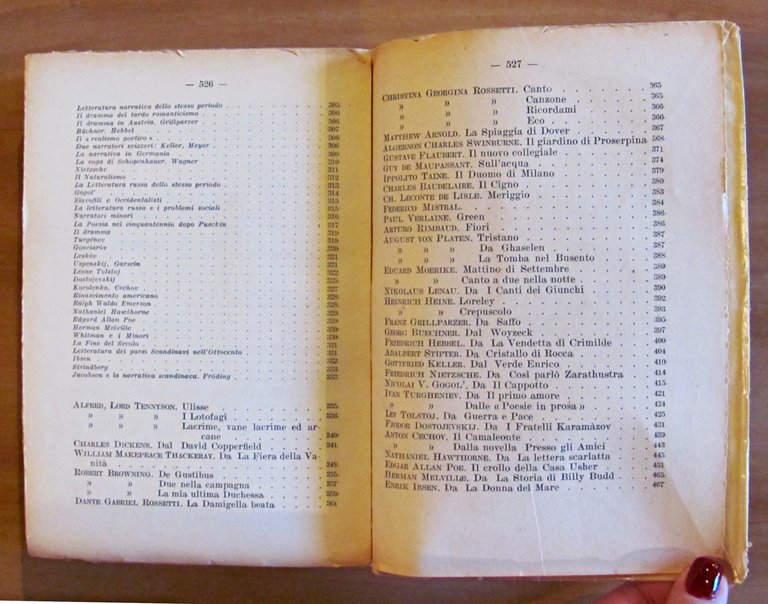 — 526 —
Letteratura narrativa dello stesso periodo . 305
Il dramma del tardo romanticismo . 306
Il dramma in Austria. Grillparzer . 306
Büchner. Hebbel . 307
Il « realismo poetico » . 308
Due narratori svizzeri: Keller, Meyer . 308
La narrativa in Germania . 309
La voga di Schopenhauer. Wagner . 310
Nietzsche . 311
Il Naturalismo . 312
La Letteratura russa dello stesso periodo . 313
Gogol' . 314
Slavofili e Occidentalisti . 315
La letteratura russa e i problemi sociali . 315
Narratori minori . 316
La Poesia nel cinquantennio dopo Pusckin . 317
Il dramma . 319
Turgénev . 320
Gonciaròv . 320
Leskòv . 321
Uspenskij, Garscin . 321
Leone Tolstoj . 322
Dostojevskij . 325
Korolenko. Cechov . 326
Rinascimento americano . 328
Ralph Waldo Emerson . 328
Nathaniel Hawthorne . 329
Edgard Allan Poe . 329
Herman Melville . 330
Whitman e i Minori . 330
La Fine del Secolo . 331
Letteratura dei paesi Scandinavi nell'Ottocento . 331
Ibsen . 331
Strindberg . 332
Jacobsen e la narrativa scandinava. Fröding . 333
ALFRED, LORD TENNYSON. Ulisse . 335
» » » I Lotofagi . 336
» » » Lacrime, vane lacrime ed ar-
cane . 340
CHARLES DICKENS. Dal David Copperfield . 341
WILLIAM MAKEPEACE THACKERAY. Da La Fiera della Va-
nità . 348
ROBERT BROWNING. De Gustibus . 355
» » Due nella campagna . 357
» » La mia ultima Duchessa . 359
DANTE GABRIEL ROSSETTI. La Damigella beata . 361
— 527 —
CHRISTINA GEORGINA ROSSETTI. Canto . 365
» » » Canzone . 365
» » » Ricordami . 366
» » » Eco . 366
MATTHEW ARNOLD. La Spiaggia di Dover . 367
ALGERNON CHARLES SWINBURNE. Il giardino di Proserpina 368
GUSTAVE FLAUBERT. Il nuovo collegiale . 371
GUY DE MAUPASSANT. Sull'acqua . 374
IPPOLITO TAINE. Il Duomo di Milano . 379
CHARLES BAUDELAIRE. Il Cigno . 380
CH. LECONTE DE LISLE. Meriggio . 383
FEDERICO MISTRAL . 384
PAUL VERLAINE. Green . 386
ARTURO RIMBAUD. Fiori . 387
AUGUST VON PLATEN. Tristano . 387
» » » Da Ghaselen . 388
» » » La Tomba nel Busento . 387
EDUARD MOERIKE. Mattino di Settembre . 389
» » Canto a due nella notte . 389
NIKOLAUS LENAU. Da I Canti dei Giunchi . 390
HEINRICH HEINE. Loreley . 392
» » Crepuscolo . 393
FRANZ GRILLPARZER. Da Saffo . 395
GEORG BUECHNER. Dal Woyzeck . 397
FRIEDRICH HEBBEL. Da La Vendetta di Crimilde . 400
ADALBERT STIFTER. Da Cristallo di Rocca . 404
GOTTFRIED KELLER. Dal Verde Enrico . 410
FRIEDRICH NIETZSCHE. Da Così parlò Zarathustra . 414
NICOLAI V. GOGOL'. Da Il Cappotto . 415
IVAN TURGHENIEV. Da Il primo amore . 421
» » Dalle « Poesie in prosa » . 424
LEV TOLSTOJ. Da Guerra e Pace . 425
FJODOR DOSTOJEVSKIJ. Da I Fratelli Karamàzov . 431
ANTON CECHOV. Il Camaleonte . 439
» » Dalla novella Presso gli Amici . 443
NATHANIEL HAWTHORNE. Da La lettera scarlatta . 445
EDGAR ALLAN POE. Il crollo della Casa Usher . 451
HERMAN MELVILLÆ. Da La Storia di Billy Budd . 465
ENRIK IBSEN. Da La Donna del Mare . 467